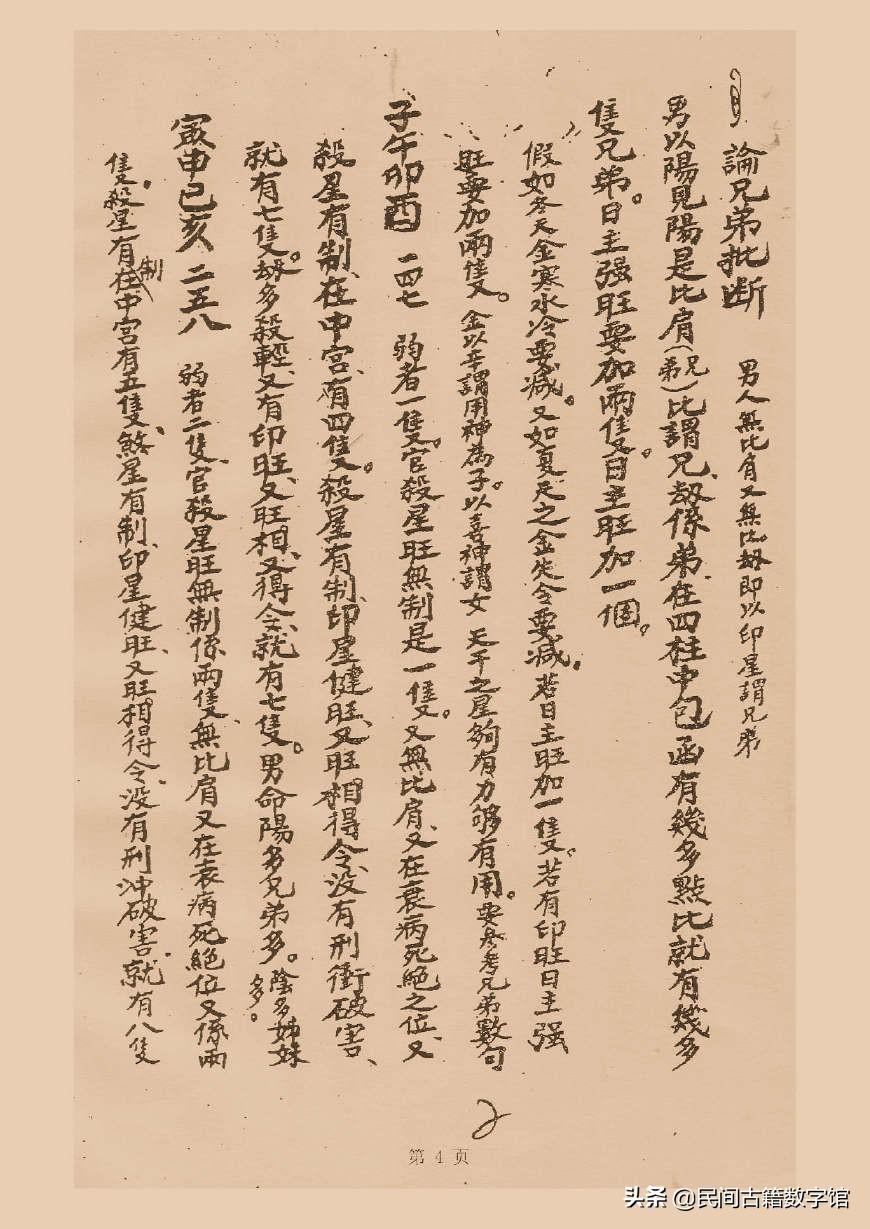 論兄弟批断 男人無比肩又無比劫即以印星謂兄弟
男以陽見陽是比肩(兄弟)比謂兄、劫係弟、在四柱中包函有幾多點比就有幾多
隻兄弟。日主强旺要加兩隻。日主旺加一個。
假如冬天金寒水冷要减。又如夏天之金失令要减。若日主旺加一隻。若有印旺日主强
旺要加兩隻。金以辛謂用神為子。以喜神謂女 天干之星夠有力够有用。要参考兄弟數句
子午卯酉 一四七 弱者一隻。官殺星旺無制是一隻。又無比肩、又在衰病死絕之位、又
殺星有制、在中宮、有四隻。殺星有制、印星健旺、又旺相得令、没有刑衝破害、
就有七隻。劫多殺輕、又有印旺、又旺相、又得令、就有七隻。男命陽多兄弟多。陰多姊妹多。
寅申己亥 二五八 弱者二隻、官殺星旺無制係兩隻、無比肩又在衰病死絕位又係兩
隻。殺星有制在中宮有五隻、煞星有制、印星健旺、又旺相得令、没有刑冲破害、就有八隻
2
第 4 页
头条 @民间古籍数字馆